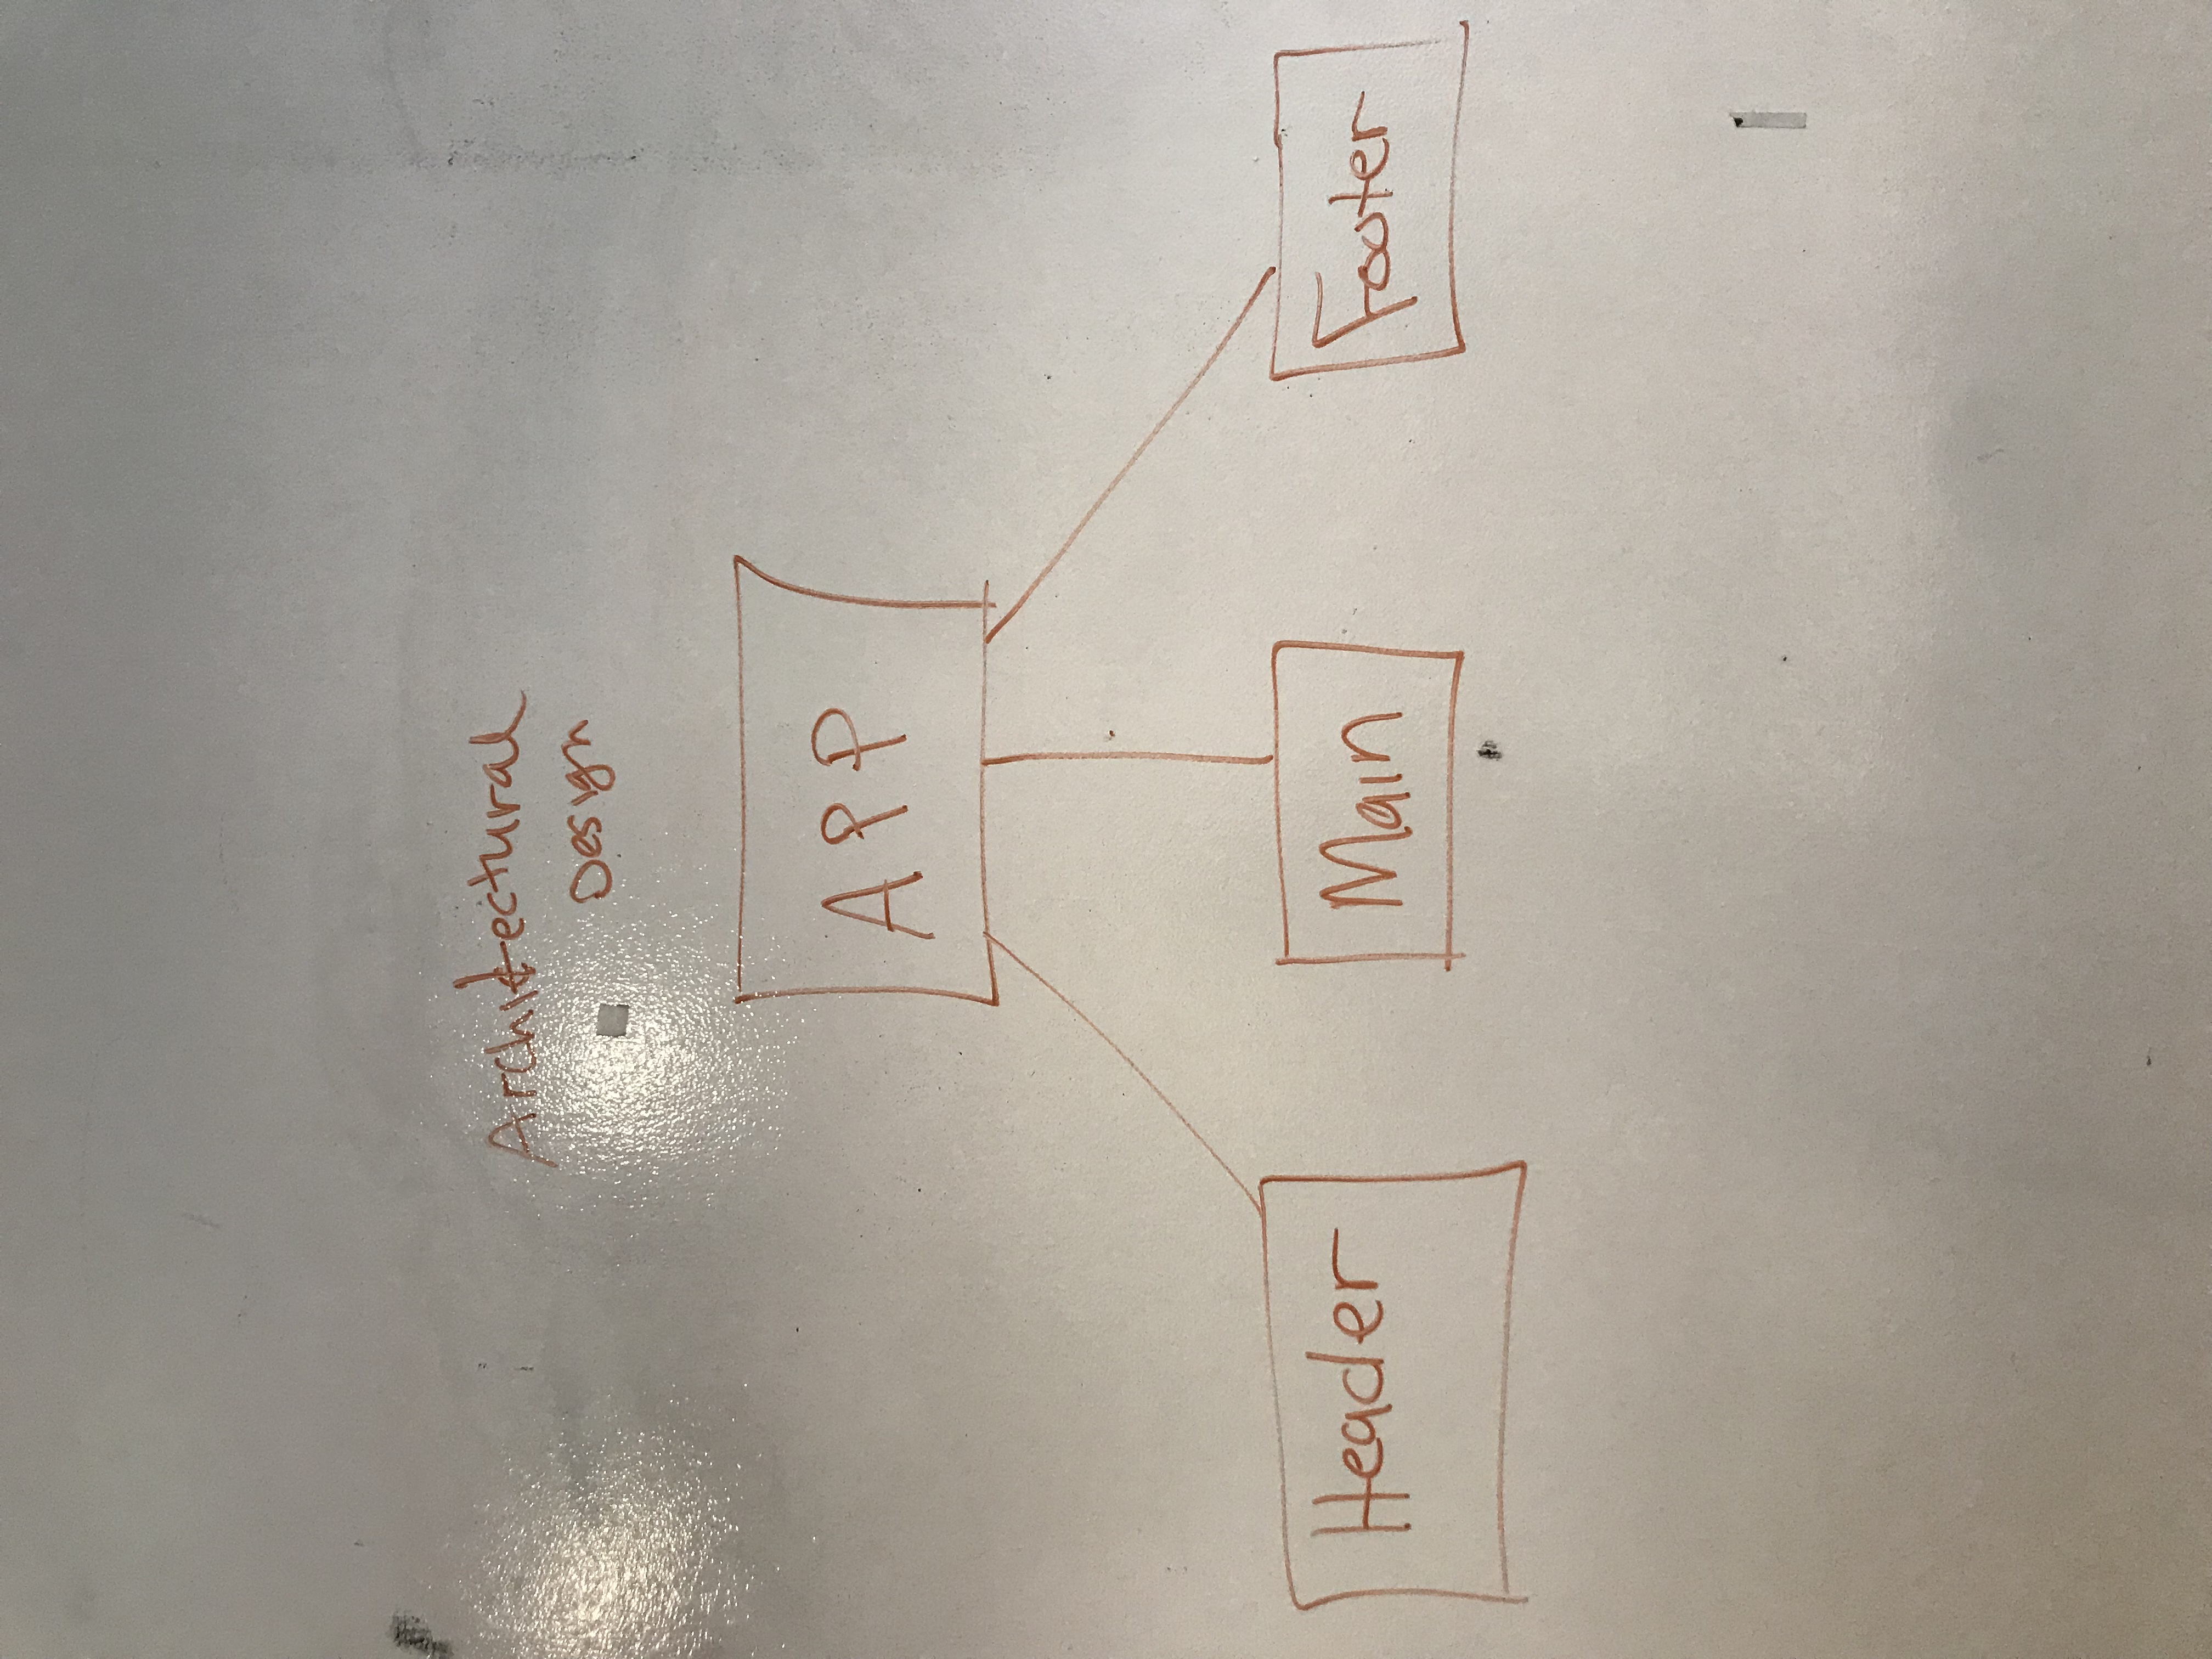 Architectural
Design
APP
Header
Main
Footer